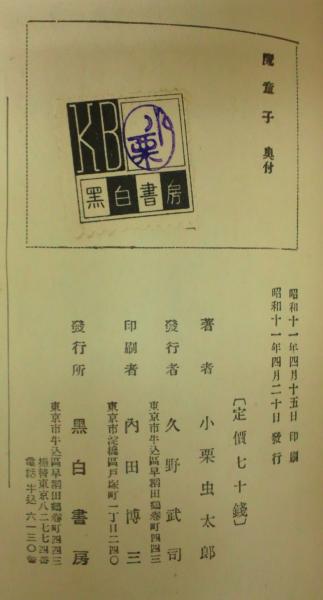 魔童子 奥付
KB
小栗
黑白書房
昭和十一年四月十五日印刷
昭和十一年四月二十日發行
〔定價七十錢〕
著者 小栗虫太郎
發行者 久野武司
東京市牛込區早稻田鶴巻町四四三
印刷者 內田博三
東京市淀橋區戸塚町一丁目二四〇
發行所 黑白書房
東京市牛込區早稻田鶴巻町四四三
振替東京八二七七四番
電話牛込六一三〇番